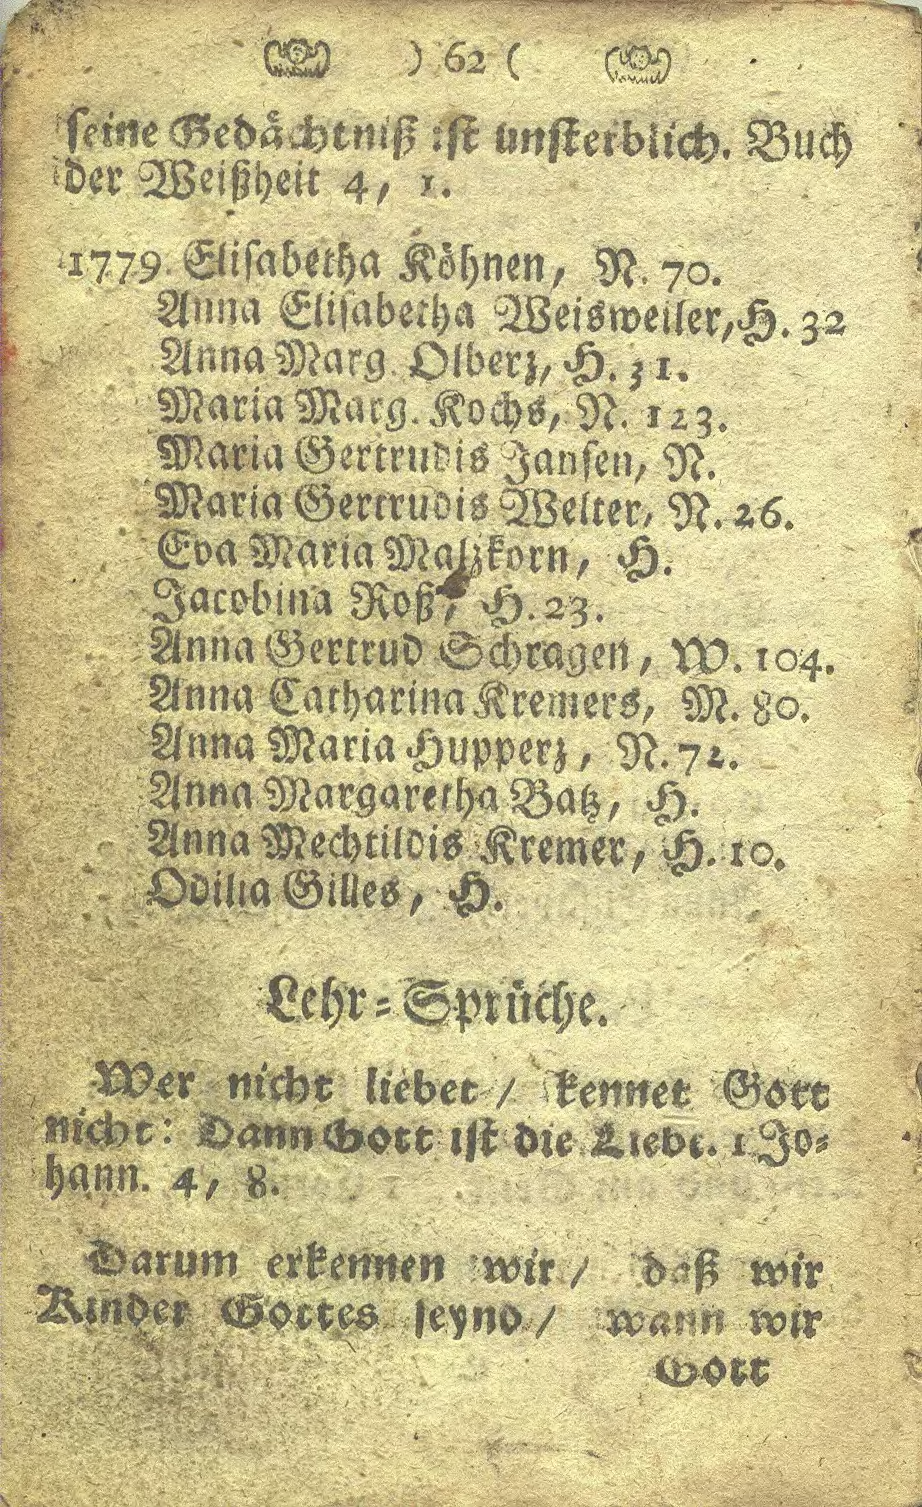 ) 62 (
seine Gedächtniß ist unsterblich. Buch
der Weißheit 4, 1.
1779. Elisabetha Köhnen, N. 70.
Anna Elisabetha Weisweiler, H. 32
Anna Marg. Olberz, H. 31.
Maria Marg. Kochs, N. 123.
Maria Gertrudis Jansen, N.
Maria Gertrudis Welter, N. 26.
Eva Maria Malzkorn, H.
Jacobina Roß, H. 23.
Anna Gertrud Schragen, W. 104.
Anna Catharina Kremers, M. 80.
Anna Maria Hupperz, N. 72.
Anna Margaretha Batz, H.
Anna Mechtildis Kremer, H. 10.
Odilia Gilles, H.
Lehr-Sprüche.
Wer nicht liebet / kennet Gott
nicht: Dann Gott ist die Liebe. 1 Jo-
hann. 4, 8.
Darum erkennen wir / daß wir
Kinder Gottes seynd / wann wir
Gott